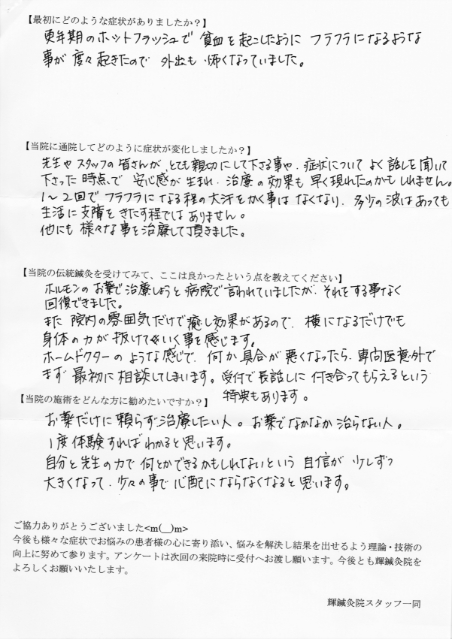 【最初にどのような症状がありましたか？】
更年期のホットフラッシュで 貧血を起こしたように フラフラになるような
事が度々起きたので 外出も怖くなっていました。
【当院に通院してどのように症状が変化しましたか？】
先生や スタッフの皆さんが、とても親切にして下さる事や、症状について よく話しを聞いて
下さった時点で 安心感が生まれ、治療の効果も 早く現れたのかもしれません。
1〜2回で フラフラになる程の大汗をかく事は なくなり、多少の波はあっても
生活に支障をきたす程ではありません。
他にも様々な事を治療して頂きました。
【当院の伝統鍼灸を受けてみて、ここは良かったという点を教えてください】
ホルモンのお薬で治療しようと 病院で言われていましたが、それをする事なく
回復できました。
また 院内の雰囲気だけで 癒し効果があるので、横になるだけでも
身体の力が抜けてゆく事を感じます。
ホームドクターのような感じで、何か具合が悪くなったら、専門医意外で
まず最初に相談してしまいます。受付で長話しに 付き合ってもらえるという
特典もあります。
【当院の施術をどんな方に勧めたいですか？】
お薬だけに頼らず治療したい人。お薬でなかなか治らない人。
1度体験すればわかると思います。
自分と先生の力で 何とかできるかもしれないという 自信が 少しずつ
大きくなって、少々の事で 心配にならなくなると思います。
ご協力ありがとうございました<m(__)m>
今後も様々な症状でお悩みの患者様の心に寄り添い、悩みを解決し結果を出せるよう理論・技術の
向上に努めて参ります。アンケートは次回の来院時に受付へお渡し願います。今後とも輝鍼灸院を
よろしくお願いいたします。
輝鍼灸院スタッフ一同